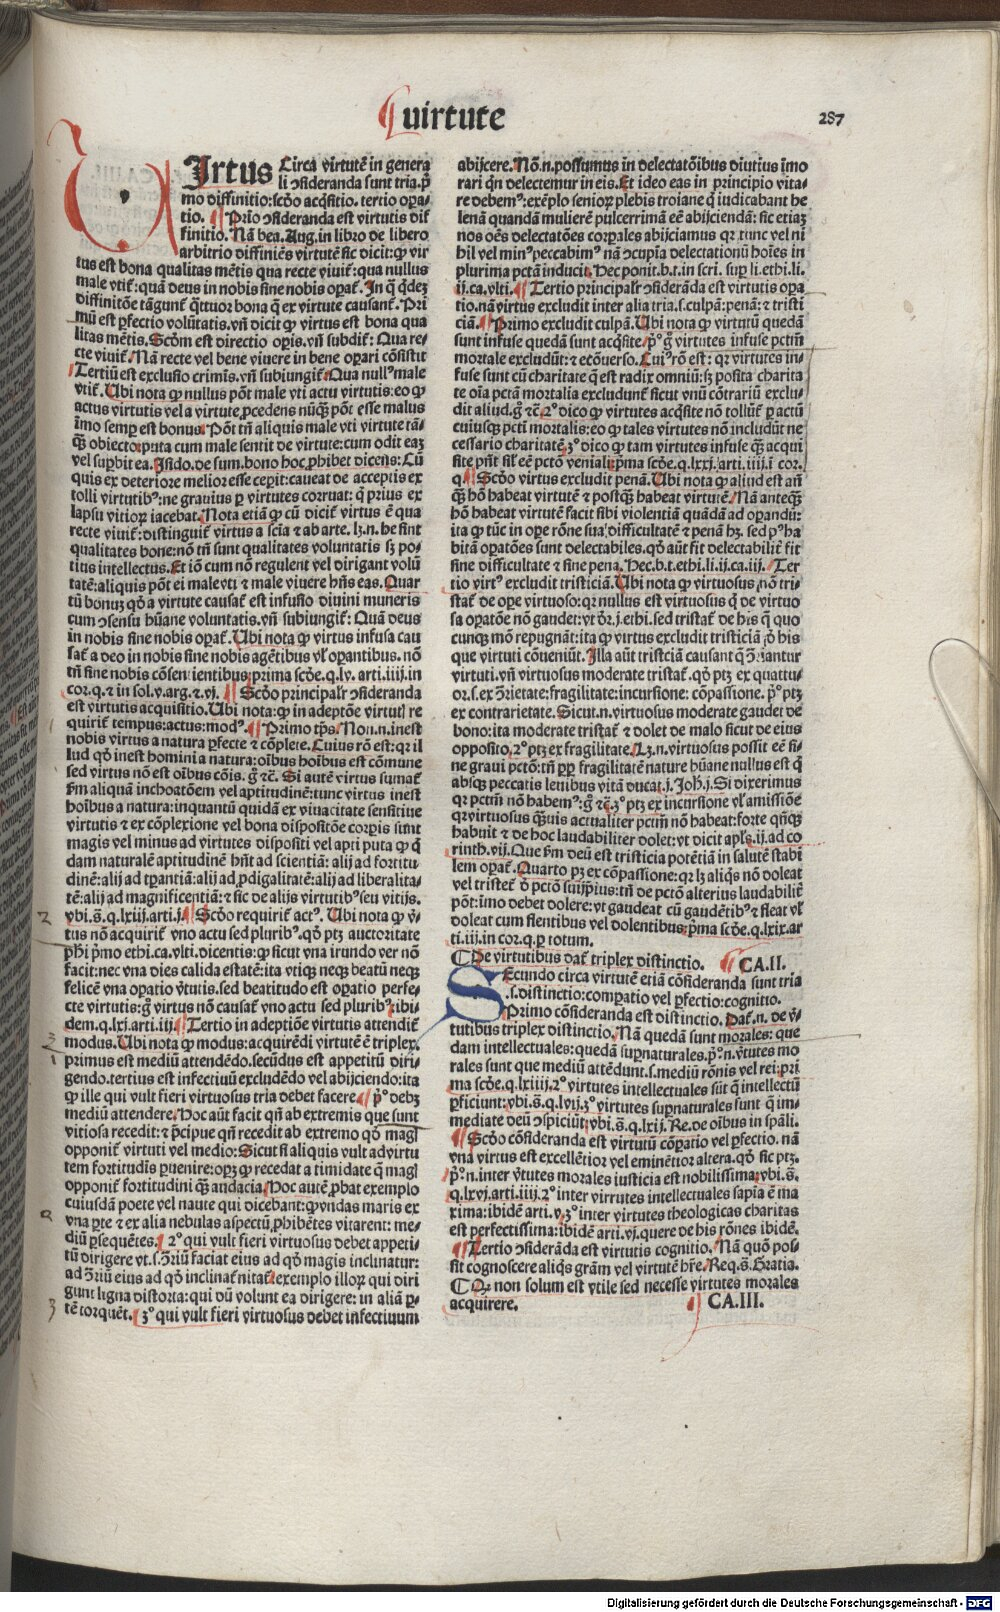 uirtute
287
VIrtus Circa virtutē in genera
li ↄsideranda sunt tria. p̄
mo diffinitio: scd̄o acq̄sitio. tertio oꝑa
tio. Prīo ↄsideranda est virtutis dif
finitio. Nā bea. Aug. in libro de libero
arbitrio diffiniēs virtutē sic dicit: ꝙ vir
tus est bona qualitas mētis qua recte viuit̄: qua nullus
male vtit̄: quā deus in nobis sine nobis oꝑat̄. In q̄ q̇dez
diffinitōe tāgunt̄ q̄ttuor bona q̄ ex virtute causant̄. Pri
mū est ꝑfectio volūtatis. vn̄ dicit ꝙ virtus est bona qua
litas mētis. Scd̄m est directio oꝑis. vn̄ subdit̄: Qua re-
cte viuit̄. Nā recte vel bene viuere in bene oꝑari cōsistit
Tertiū est exclusio crimīs. vn̄ subiungit̄. Qua null⁹ male
vtit̄. Ubi nota ꝙ nullus pōt male vti actu virtutis: eo ꝙ
actus virtutis vel a virtute ꝓcedens nūq̄ꝫ pōt esse malus
īmo semꝑ est bonus. Pōt tn̄ aliquis male vti virtute tā-
q̄ꝫ obiecto: puta cum male sentit de virtute: cum odit eaꝫ
vel suꝑbit ea. Isido. de sum. bono hoc ꝓhibet dicēs: Cū
quis ex deteriore melior esse cepit: caueat de acceptis ex
tolli virtutib⁹: ne grauius ꝑ virtutes corruat: q̄ prius ex
lapsu vitioꝝ iacebat. Nota etiā ꝙ cū dicit̄ virtus ē qua
recte viuit̄: distinguit̄ virtus a sciā ⁊ ab arte. lꝫ. n. he sint
qualitates bone: nō tn̄ sunt qualitates voluntatis sꝫ po-
tius intellectus. Et iō cum nō regulent vel dirigant volū
tatē: aliquis pōt ei male vti ⁊ male viuere hn̄s eas. Quar
tū bonuꝫ qd̄ a virtute causat̄ est infusio diuini muneris
cum ↄsensu hūane voluntatis. vn̄ subiungit̄: Quā deus
in nobis sine nobis oꝑat̄. Ubi nota ꝙ virtus infusa cau
sat̄ a deo in nobis sine nobis agētibus vl̓ oꝑantibus. nō
tn̄ sine nobis cōsentientibus: prima scd̄e. q. lv. arti. iiij. in
cor. q. ⁊ in sol. v. arg. ⁊ vj. Scd̄o principalr̄ ↄsideranda
est virtutis acquisitio. Ubi nota: ꝙ in adeptōe virtutis re
quirit̄ tempus: actus: mod⁹. Primo tp̄s. Non. n. inest
nobis virtus a natura ꝑfecte ⁊ cōplete. Cuius rō est: qꝛ il
lud qd̄ inest homini a natura: oībus hoībus est cōmune
sed virtus nō est oībus cōis. g̊ ⁊c̄. Si autē virtus sumat̄
ẜm aliquā inchoatōem vel aptitudinē: tunc virtus inest
hoībus a natura: inquantū quidā ex viuacitate sensitiue
virtutis ⁊ ex cōplexione vel bona dispositōe corꝑis sunt
magis vel minus ad virtutes dispositi vel apti puta ꝙ q̇
dam naturalē aptitudinē hn̄t ad scientiā: alij ad fortitu
dinē: alij ad tꝑantiā: alij ad ꝓdigalitatē: alij ad liberalita-
tē: alij ad magnificentiā: ⁊ sic de alijs virtutib⁹ seu vitijs.
2 vbi. s̄. q. lxiij. arti. j. Scd̄o requirit̄ act⁹. Ubi nota ꝙ v̓-
tus nō acquirit̄ vno actu sed plurib⁹. qd̄ ptꝫ auctoritate
ph̓i p̄mo ethi. ca. vlti. dicentis: ꝙ sicut vna irundo ver nō
facit: nec vna dies calida estatē: ita vtiqꝫ neqꝫ beatū neqꝫ
felicē vna oꝑatio v̓tutis. sed beatitudo est oꝑatio perfe-
cte virtutis: g̊ virtus nō causat̄ vno actu sed plurib⁹: ibi
dem. q. lxj. arti. iij. Tertio in adeptiōe virtutis attendit̄
3 modus. Ubi nota ꝙ modus: acquirēdi virtutē ē triplex.
1 primus est mediū attendēdo. secūdus est appetitū diri-
gendo. tertius est infectiuū excludēdo vel abijciendo: ita
ꝙ ille qui vult fieri virtuosus tria debet facere. p̊ debꝫ
mediū attendere. Hoc aūt facit qn̄ ab extremis que sunt
vitiosa recedit: ⁊ p̄cipue qn̄ recedit ab extremo qd̄ magꝭ
opponit̄ virtuti vel medio: Sicut si aliquis vult ad virtu
tem fortitudīs ꝑuenire: opꝫ ꝙ recedat a timidate q̄ magꝭ
opponit̄ fortitudini q̄ꝫ audacia. Hoc autē ꝓbat exemplo
cuiusdā poete vel naute qui dicebant: ꝙ vndas maris ex
2 vna ꝑte ⁊ ex alia nebulas aspectū ꝓhibētes vitarent: me-
diū ꝑsequētes. 2⁰ qui vult fieri virtuosus debet appeti-
tū dirigere vt. s. ↄ̄riū faciat eius ad qd̄ magis inclinatur:
ad ↄ̄riū eius ad qd̄ inclinat̄ nitat̄: exemplo illoꝝ qui diri
3 gunt ligna distorta: qui dū volunt ea dirigere: in aliā ꝑ
tē torquēt. 3⁰ qui vult fieri virtuosus debet infectiuum
abijcere. Nō. n. possumus in delectatōibus diutius īmo
rari qn̄ delectemur in eis. Et ideo eas in principio vita-
re debem⁹: exēplo senioꝝ plebis troiane q̇ iudicabant he
lenā quandā mulierē pulcerrimā eē abijciendā: sic etiaꝫ
nos oēs delectatōes corꝑales abijciamus qꝛ tunc vel ni
hil vel min⁹ peccabim⁹ nā ↄcupīa delectationū hoīes in
plurima pctā inducit. Hec ponit. b. t. in scri. suꝑ li. ethi. li.
ij. ca. vlti. Tertio principalr̄ ↄsiderāda est virtutis oꝑa
tio. nā virtus excludit inter alia tria. s. culpā: penā: ⁊ tristi
ciā. Primo excludit culpā. Ubi nota ꝙ virtutū quedā
sunt infuse quedā sunt acq̄site. p̊ g̊ virtutes infuse pctm̄
mortale excludūt: ⁊ ecōuerso. Cui⁹ rō est: qꝛ virtutes in-
fuse sunt cū charitate q̄ est radix omniū: sꝫ posita charita
te oīa pctā mortalia excludunt̄ sicut vnū cōtrariū exclu-
dit aliud. g̊ ⁊c̄. 2⁰ dico ꝙ virtutes acq̄site nō tollūt̄ ꝑ actū
cuiusqꝫ pcti mortalis: eo ꝙ tales virtutes nō includūt ne
cessario charitatē. 3⁰ dico ꝙ tam virtutes infuse q̄ꝫ acqui
site pn̄t sil̓ eē pctō veniali: p̄ma scd̄e. q. lxxj. arti. iiij. ī cor.
q. Scd̄o virtus excludit penā. Ubi nota ꝙ aliud est an̄
q̄ꝫ hō habeat virtutē ⁊ postq̄ꝫ habeat virtutē. Nā anteq̄ꝫ
hō habeat virtutē facit sibi violentiā quādā ad oꝑandū:
ita ꝙ tūc in oꝑe rōne sua difficultatē ⁊ penā hꝫ. sed p⁹ ha
bitā oꝑatōes sunt delectabiles. qd̄ aūt fit delectabilit̄ fit
sine difficultate ⁊ sine pena. Hec. b. t. ethi. li. ij. ca. iij. Ter
tio virt⁹ excludit tristiciā. Ubi nota ꝙ virtuosus nō tri-
stat̄ de oꝑe virtuoso: qꝛ nullus est virtuosus q̇ de virtuo
sa oꝑatōe nō gaudet: vt dr̄. j. ethi. sed tristat̄ de his q̄ quo
cunqꝫ mō repugnāt: ita ꝙ virtus excludit tristiciā ō his
que virtuti cōueniūt. Illa aūt tristiciā causant q̄ ↄ̄riantur
virtuti. vn̄ virtuosus moderate tristat̄. qd̄ ptꝫ ex quattu-
or. s. ex ↄ̄rietate: fragilitate: incursione: cōpassione. p̊ ptꝫ
ex contrarietate. Sicut. n. virtuosus moderate gaudet de
bono: ita moderate tristat̄ ⁊ dolet de malo sicut de eius
opposito. 2⁰ ptꝫ ex fragilitate. Lꝫ. n. virtuosus possit eē si-
ne graui pctō: tn̄ ꝓpꝑ fragilitatē nature hūane nullus est q̇
absqꝫ peccatis leuibus vitā ducat. j. Joh̄. j. Si dixerimus
qꝛ pctm̄ nō habem⁹: g̊ ⁊c̄. 3⁰ ptꝫ ex incursione vl̓ amissiōe
qꝛ virtuosus q̄ꝫuis actualiter pctm̄ nō habeat: forte qn̄qꝫ
habuit ⁊ de hoc laudabiliter dolet: vt dicit apl̓s. ij. ad co
rinth. vij. Que ẜm deū est tristicia potētiā in salutē stabi
lem oꝑat̄. Quarto pꝫ ex cōpassione: qꝛ lꝫ aliq̇s nō doleat
vel tristet̄ ō pctō suijpius: tn̄ de pctō alterius laudabilit̄
pōt: īmo debet dolere: vt gaudeat cū gaudētib⁹ ⁊ fleat vl̓
doleat cum flentibus vel dolentibus: p̄ma scd̄e. q. lxix. ar
ti. iij. in cor. q. ꝑ totum.
De virtutibus dat̄ triplex distinctio. CA. II.
SEcundo circa virtutē etiā cōsideranda sunt tria
. s. distinctio: comꝑatio vel ꝑfectio: cognitio.
Primo cōsideranda est distinctio. Dat̄. n. de v̓-
tutibus triplex distinctio. Nā quedā sunt morales: que
dam intellectuales: quedā suꝑnaturales. p̊. n. v̓tutes mo
rales sunt que mediū attēdunt. s. mediū rōnis vel rei: pri
ma scd̄e. q. lxiiij. 2⁰ virtutes intellectuales sūt q̄ intellectū
ꝑficiunt: vbi. s̄. q. lvij. 3⁰ virtutes suꝑnaturales sunt q̄ im-
mediate deū ↄspiciūt: vbi. s̄. q. lxij. Re. de oībus in spāli.
Scd̄o cōsideranda est virtutū cōꝑatio vel ꝑfectio. nā
vna virtus est excellētior vel eminētior altera. qd̄ sic ptꝫ.
p̊. n. inter v̓tutes morales iusticia est nobilissima: vbi. s̄.
q. lxvj. arti. iiij. 2⁰ inter virrutes intellectuales sapīa ē ma
xima: ibidē arti. v. 3⁰ inter virtutes theologicas charitas
est perfectissima: ibidē arti. vj. quere de his rōnes ibidē.
Tertio ↄsiderāda est virtutis cognitio. Nā quō pos-
sit cognoscere aliq̇s grām vel virtutē hr̄e. Req. s̄. Gratia.
Qꝫ non solum est vtile sed necesse virtutes morales
acquirere. CA. III.
Digitalisierung gefördert durch die Deutsche Forschungsgemeinschaft - DFG